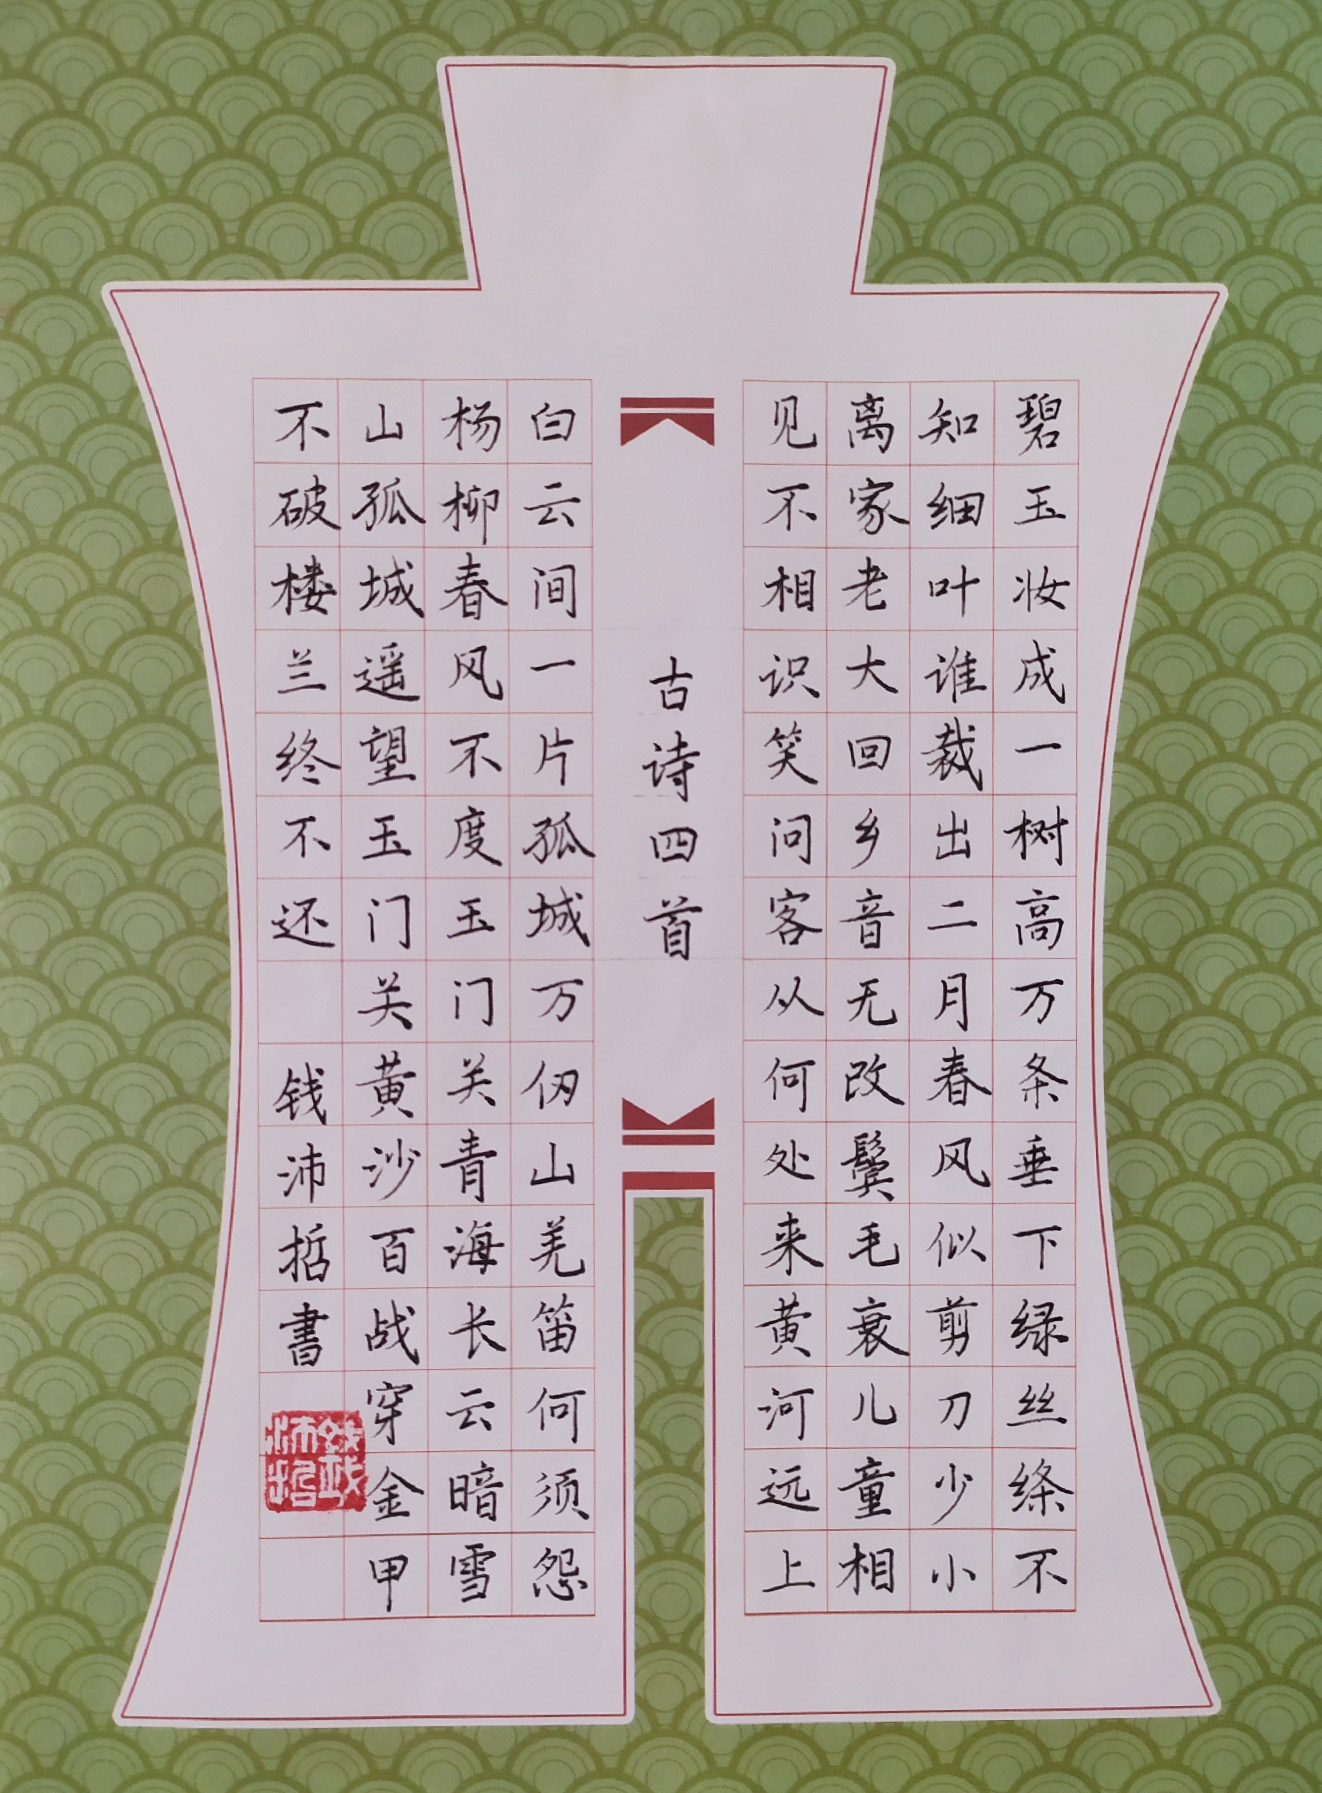 碧玉妆成一树高万条垂下绿丝绦不
知细叶谁裁出二月春风似剪刀少小
离家老大回乡音无改鬓毛衰儿童相
见不相识笑问客从何处来黄河远上
古诗四首
白云间一片孤城万仞山羌笛何须怨
杨柳春风不度玉门关青海长云暗雪
山孤城遥望玉门关黄沙百战穿金甲
不破楼兰终不还 钱沛哲書